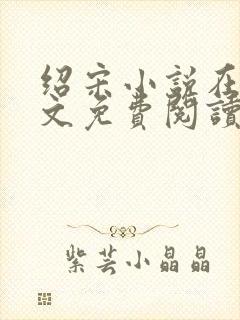 绍宋小说在
文免费閱讀
紫芸小晶晶